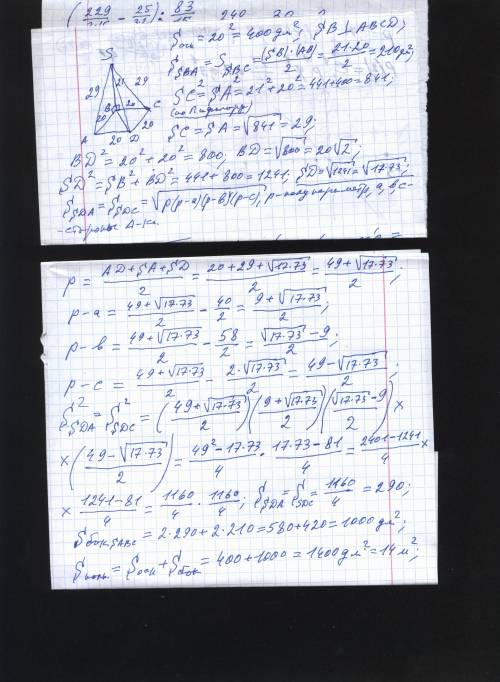 (229/2·15 - 25/2) : 83/15
S
29
21
29
B
20
20
C
A
20
D
20
Sосн = 20² = 400 дм²; (SB ⊥ ABCD)
S_SBA = S_SBC = (SB)·(AB)/2 = 21·20/2 = 210 дм²;
SC² = SA² = 21² + 20² = 441 + 400 = 841;
(по Пифагору)
SC = SA = √841 = 29;
BD² = 20² + 20² = 800; BD = √800 = 20√2;
SD² = SB² + BD² = 441 + 800 = 1241; SD = √1241 = √17·73;
S_SDA = S_SDC = √p(p-a)(p-b)(p-c); p-полупериметр, a, b, c-
-стороны Δ-ка.
p = (AD + SA + SD)/2 = (20 + 29 + √17·73)/2 = (49 + √17·73)/2;
p-a = (49 + √17·73)/2 - 40/2 = (9 + √17·73)/2;
p-b = (49 + √17·73)/2 - 58/2 = (√17·73 - 9)/2;
p-c = (49 + √17·73)/2 - 2·√17·73/2 = (49 - √17·73)/2;
S²_SDA = S²_SDC = ((49 + √17·73)/2)((9 + √17·73)/2)((√17·73 - 9)/2) ×
× ((49 - √17·73)/2) = (49² - 17·73)/4 · (17·73 - 81)/4 = (2401 - 1241)/4 ×
× (1241 - 81)/4 = 1160/4 · 1160/4; S_SDA = S_SDC = 1160/4 = 290;
Sбок SABC = 2·290 + 2·210 = 580 + 420 = 1000 дм²;
Sполн = Sосн + Sбок = 400 + 1000 = 1400 дм² = 14 м²;